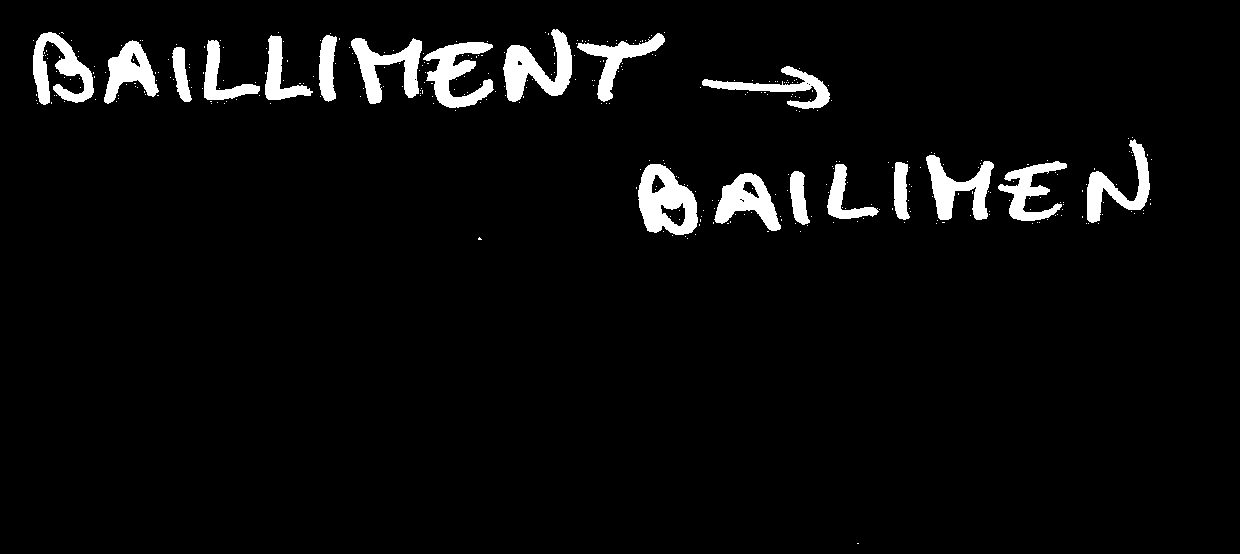 BAILLIMENT →
BAILIMEN